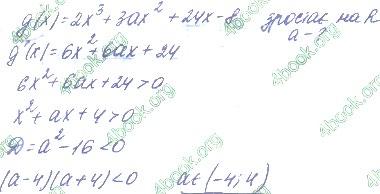 g(x)=2x³+3ax²+24x-8 зростає на R
a-?
g'(x)=6x²+6ax+24
6x²+6ax+24>0
x²+ax+4>0
D=a²-16<0
(a-4)(a+4)<0 a∈(-4;4)
4book.org